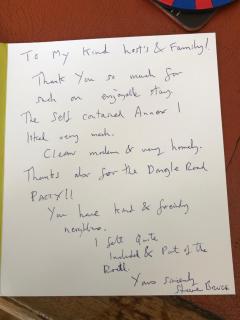 To My Kind host's & Family!
Thank You so much for
such an enjoyable stay.
The Self contained Annex I
liked very much.
Clean modern & very homely.
Thanks also for the Dongle Road
PARTY!!
You have kind & friendly
neighbours.
I felt Quite
Included & Part of the
Yours sincerely